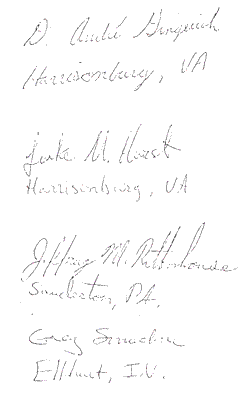 D. André Gingerich
Harrisonburg, VA
Luke M. Horst
Harrisonburg, VA
Jeffrey M. Rittenhouse
Souderton, PA.
Greg
Elkhart, IN.